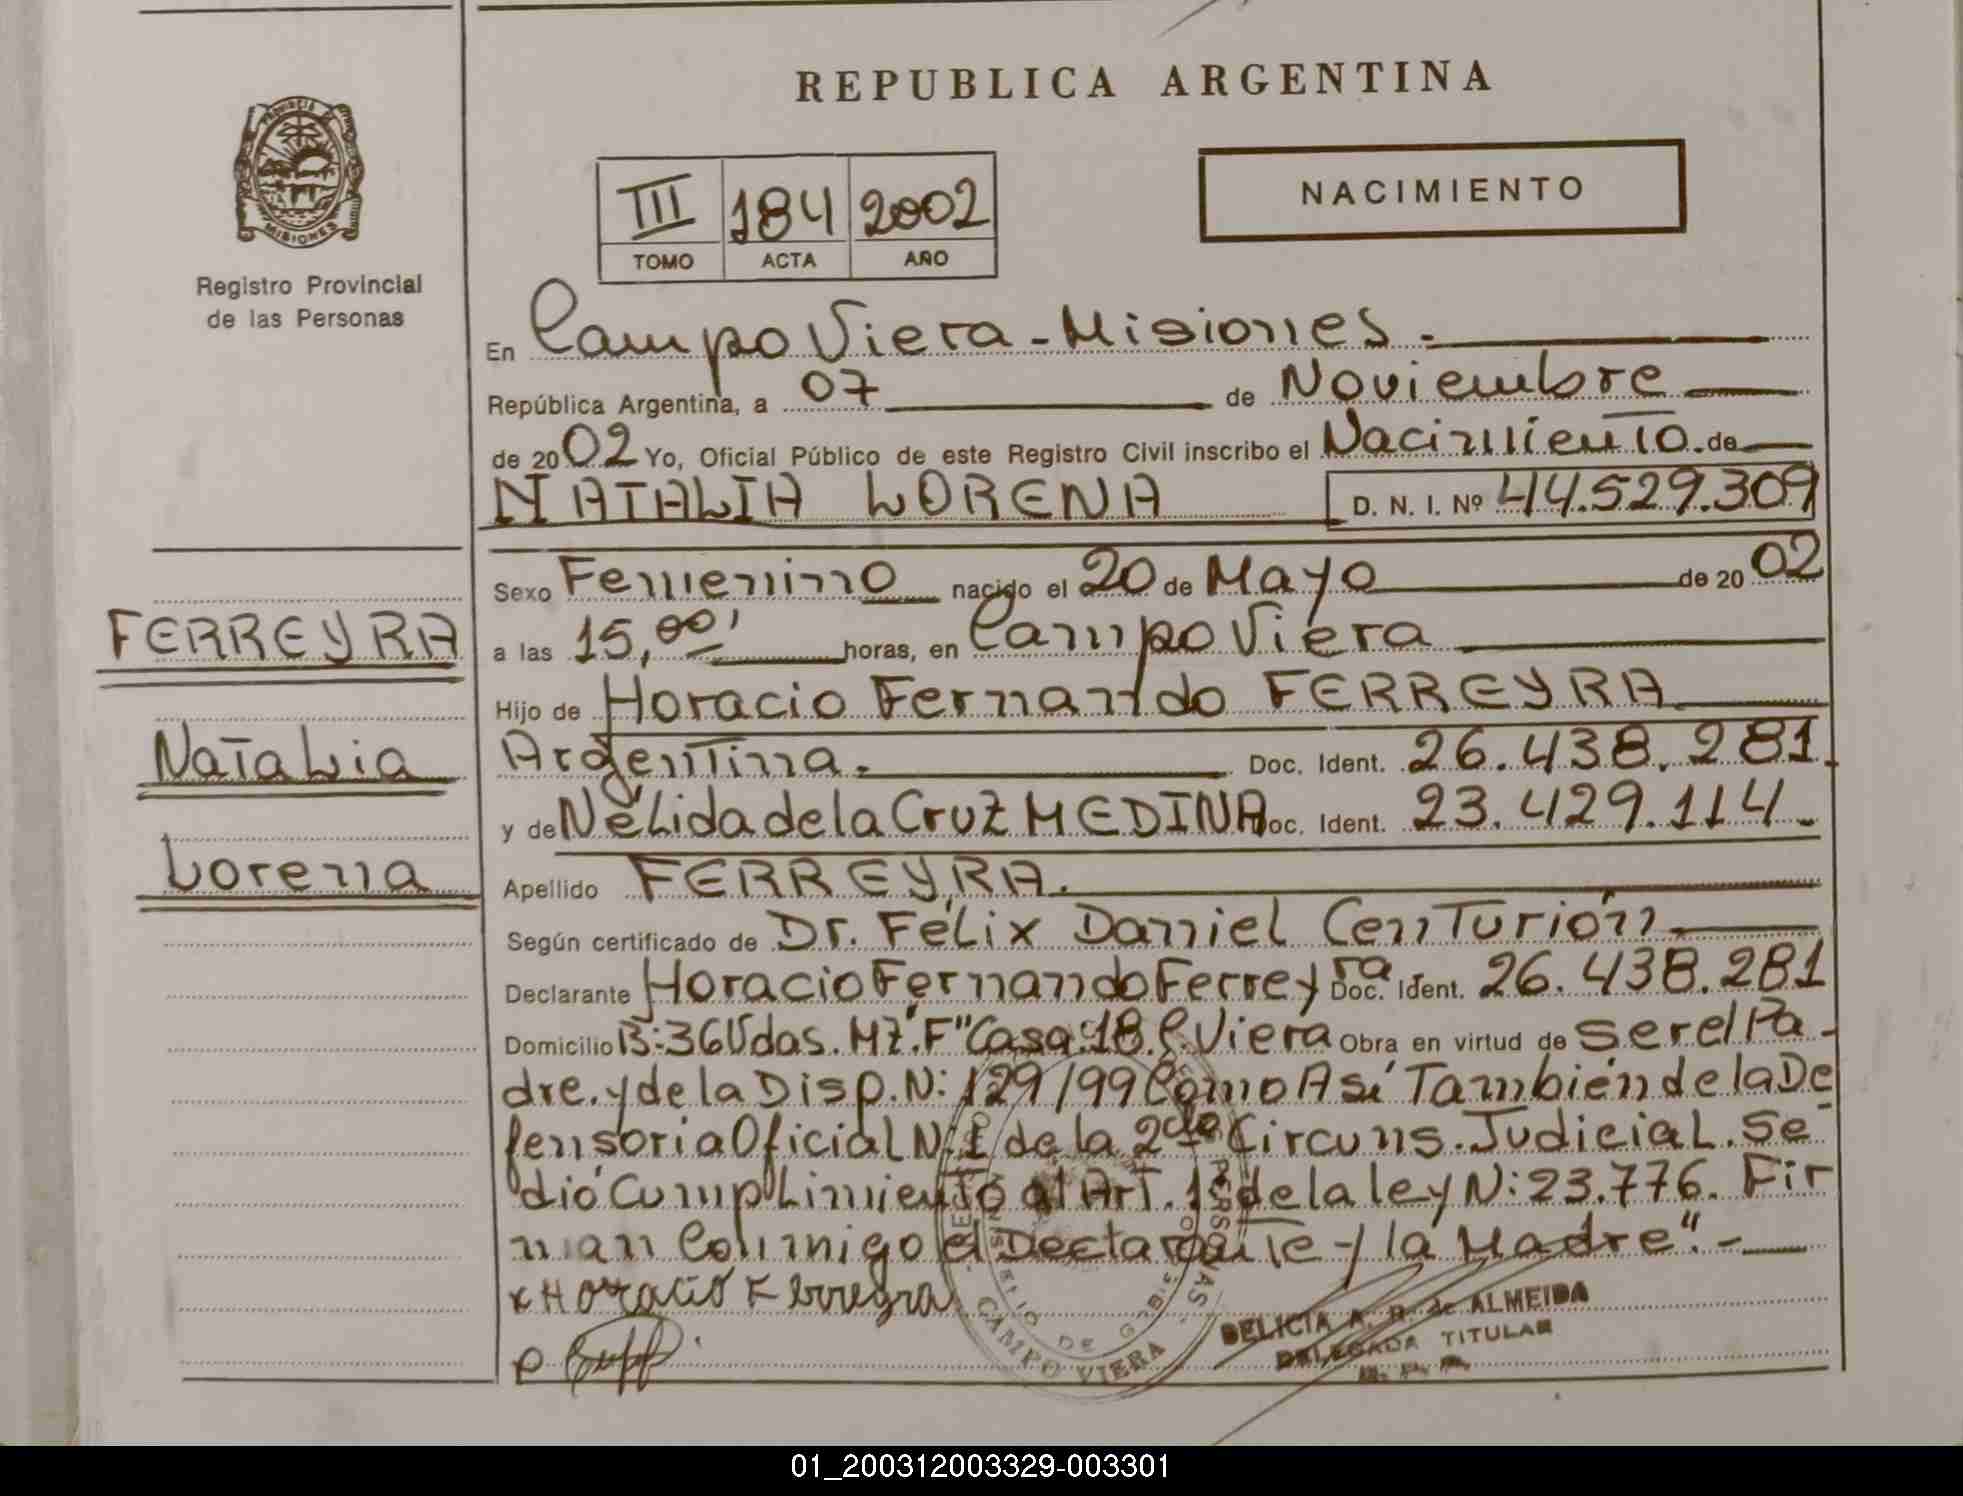 REPUBLICA ARGENTINA
PROVINCIA DE
MISIONES
Registro Provincial
de las Personas
III 184 2002
TOMO ACTA AÑO
NACIMIENTO
En Campo Viera - Misiones.
República Argentina, a 07 de Noviembre
de 2002 Yo, Oficial Público de este Registro Civil inscribo el Nacimiento de
NATALIA LORENA D. N. I. Nº 44.529.309
Sexo Femenino nacido el 20 de Mayo de 20 02
a las 15,00' horas, en Campo Viera
Hijo de Horacio Fernando FERREYRA
Argentina. Doc. Ident. 26.438.281.
y de Nélida de la Cruz MEDINA Doc. Ident. 23.429.114.
Apellido FERREYRA.
Según certificado de Dr. Félix Daniel Centurión
Declarante Horacio Fernando Ferreyra Doc. Ident. 26.438.281
Domicilio B:36 Udas. Mz."F" Casa:18. C. Viera Obra en virtud de ser el Pa-
dre. y de la Disp. N: 129/99 Como Así También de la De
fensoria Oficial N:1 de la 2da Circuns. Judicial. Se
dió Cumplimiento al Art. 1º de la ley N: 23.776. Fir
man Conmigo el Declarante y la Madre".-
x Horacio Ferreyra
DELICIA A. R. de ALMEIDA
DELEGADA TITULAR
CAMPO VIERA
FERREYRA
Natalia
Lorena
01_200312003329-003301